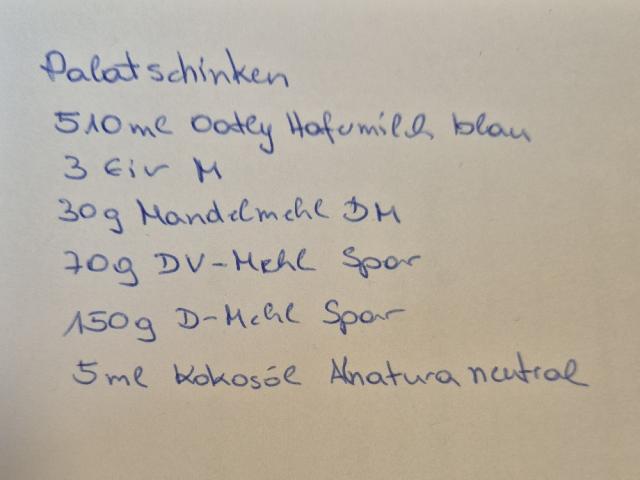 Palatschinken
510ml Oatly Hafermilch blau
3 Eier M
30g Mandelmehl DM
70g DV-Mehl Spar
150g D-Mehl Spar
5ml Kokosöl Alnatura neutral